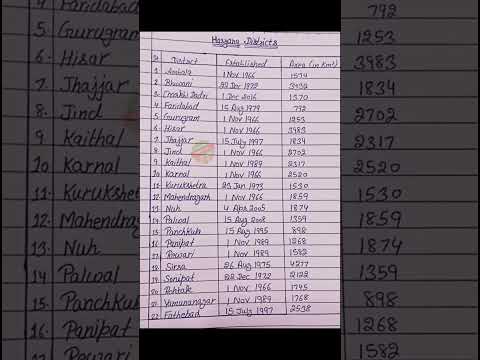 Haryana Districts
Sr District Established Area (in Km²)
1. Ambala 1 Nov 1966 1574
2. Bhiwani 22 Dec 1972 3432
3. Charkhi Dadri 1 Dec 2016 1370
4. Faridabad 15 Aug 1979 792
5. Gurugram 1 Nov 1966 1253
6. Hisar 1 Nov 1966 3983
7. Jhajjar 15 July 1997 1834
8. Jind 1 Nov 1966 2702
9. Kaithal 1 Nov 1989 2317
10. Karnal 1 Nov 1966 2520
11. Kurukshetra 23 Jan 1973 1530
12. Mahendragarh 1 Nov 1966 1859
13. Nuh 4 Apr 2005 1874
14. Palwal 15 Aug 2008 1359
15. Panchkula 15 Aug 1995 898
16. Panipat 1 Nov 1989 1268
17. Rewari 1 Nov 1989 1582
18. Sirsa 26 Aug 1975 4277
19. Sonipat 22 Dec 1972 2122
20. Rohtak 1 Nov 1966 1745
21. Yamunanagar 1 Nov 1989 1768
22. Fatehabad 15 July 1997 2538
4. Faridabad 792
5. Gurugram 1253
6. Hisar 3983
7. Jhajjar 1834
8. Jind 2702
9. Kaithal 2317
10. Karnal 2520
11. Kurukshet 1530
12. Mahendrag 1859
13. Nuh 1874
14. Palwal 1359
15. Panchkul 898
16. Panipat 1268
Rewari 1582